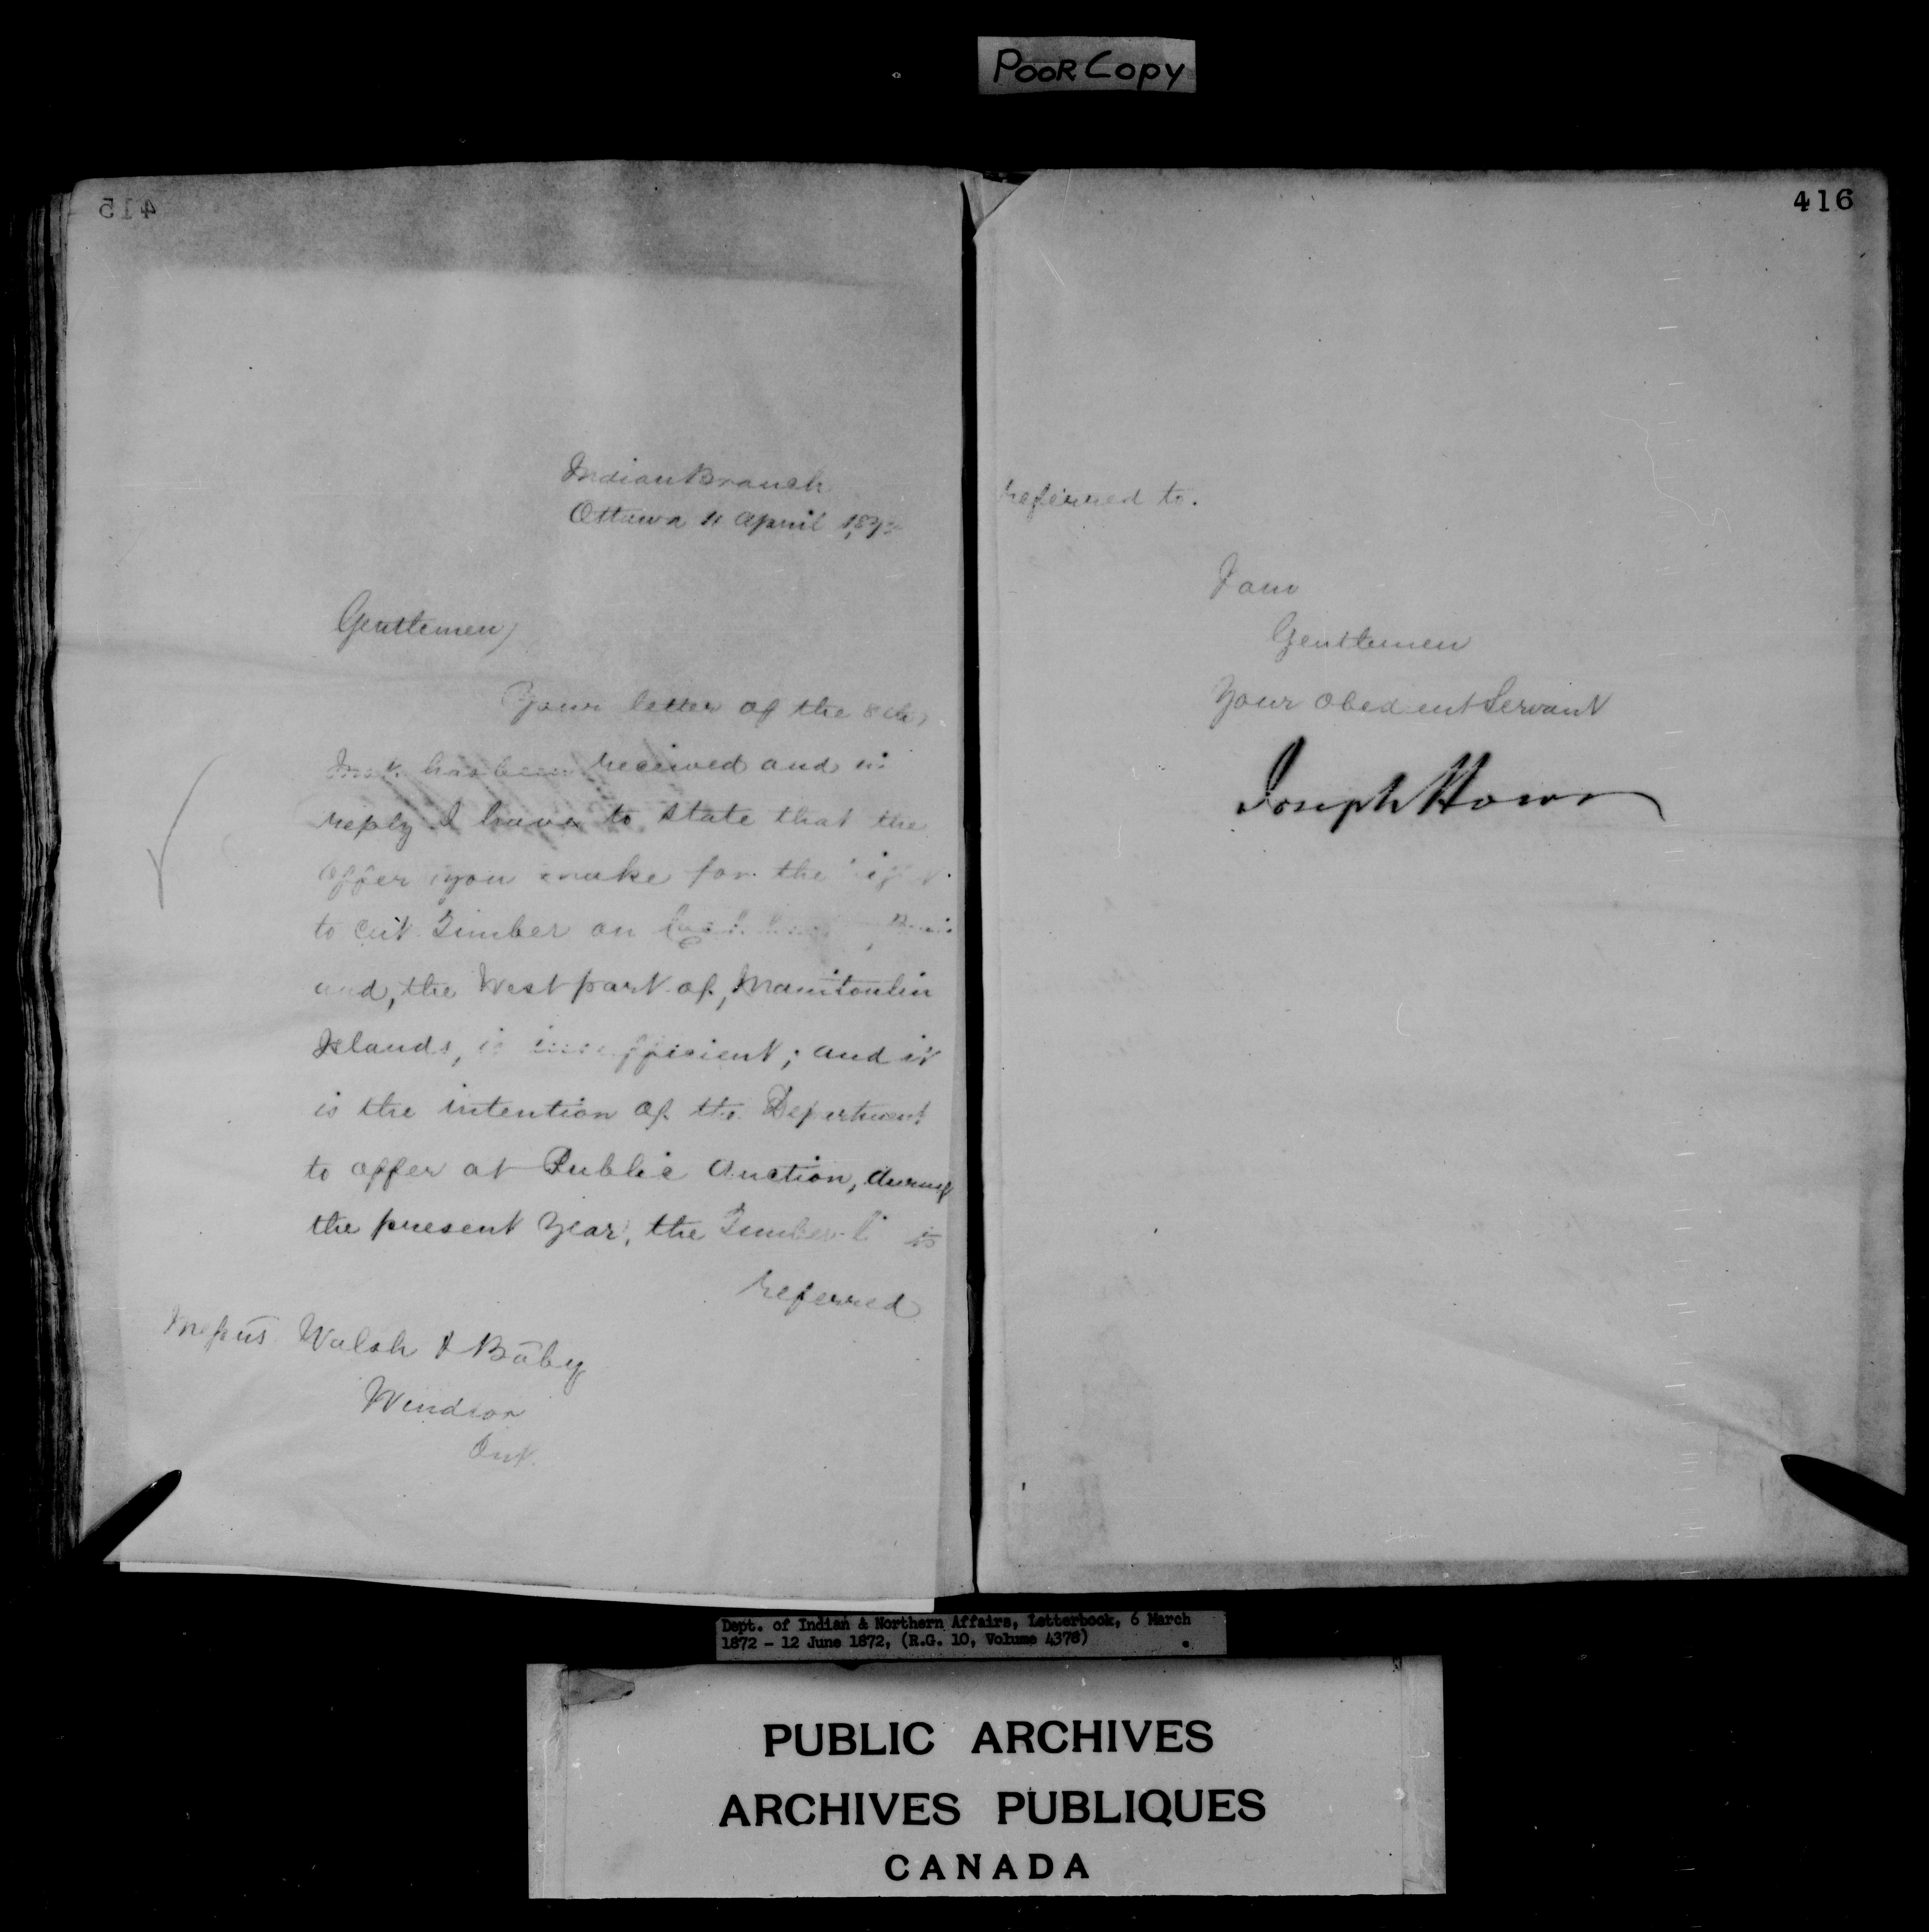 POOR Copy
415
Indian Branch
Ottawa 11 April 187
Gentlemen,
Your letter of the 8th
Inst. has been received and in
reply I have to state that the
offer you make for the right
to cut Timber on
and, the West part of, Manitoulin
Islands, is insufficient; and it
is the intention of the Department
to offer at Public Auction, during
the present Year, the Timber
referred
Messrs Walsh & Băby
Windsor
Ont.
416
referred to.
I am
Gentlemen
Your obedient Servant
Joseph Howe
Dept. of Indian & Northern Affairs, Letterbook, 6 March
1872 - 12 June 1872, (R.G. 10, Volume 4378)
PUBLIC ARCHIVES
ARCHIVES PUBLIQUES
CANADA